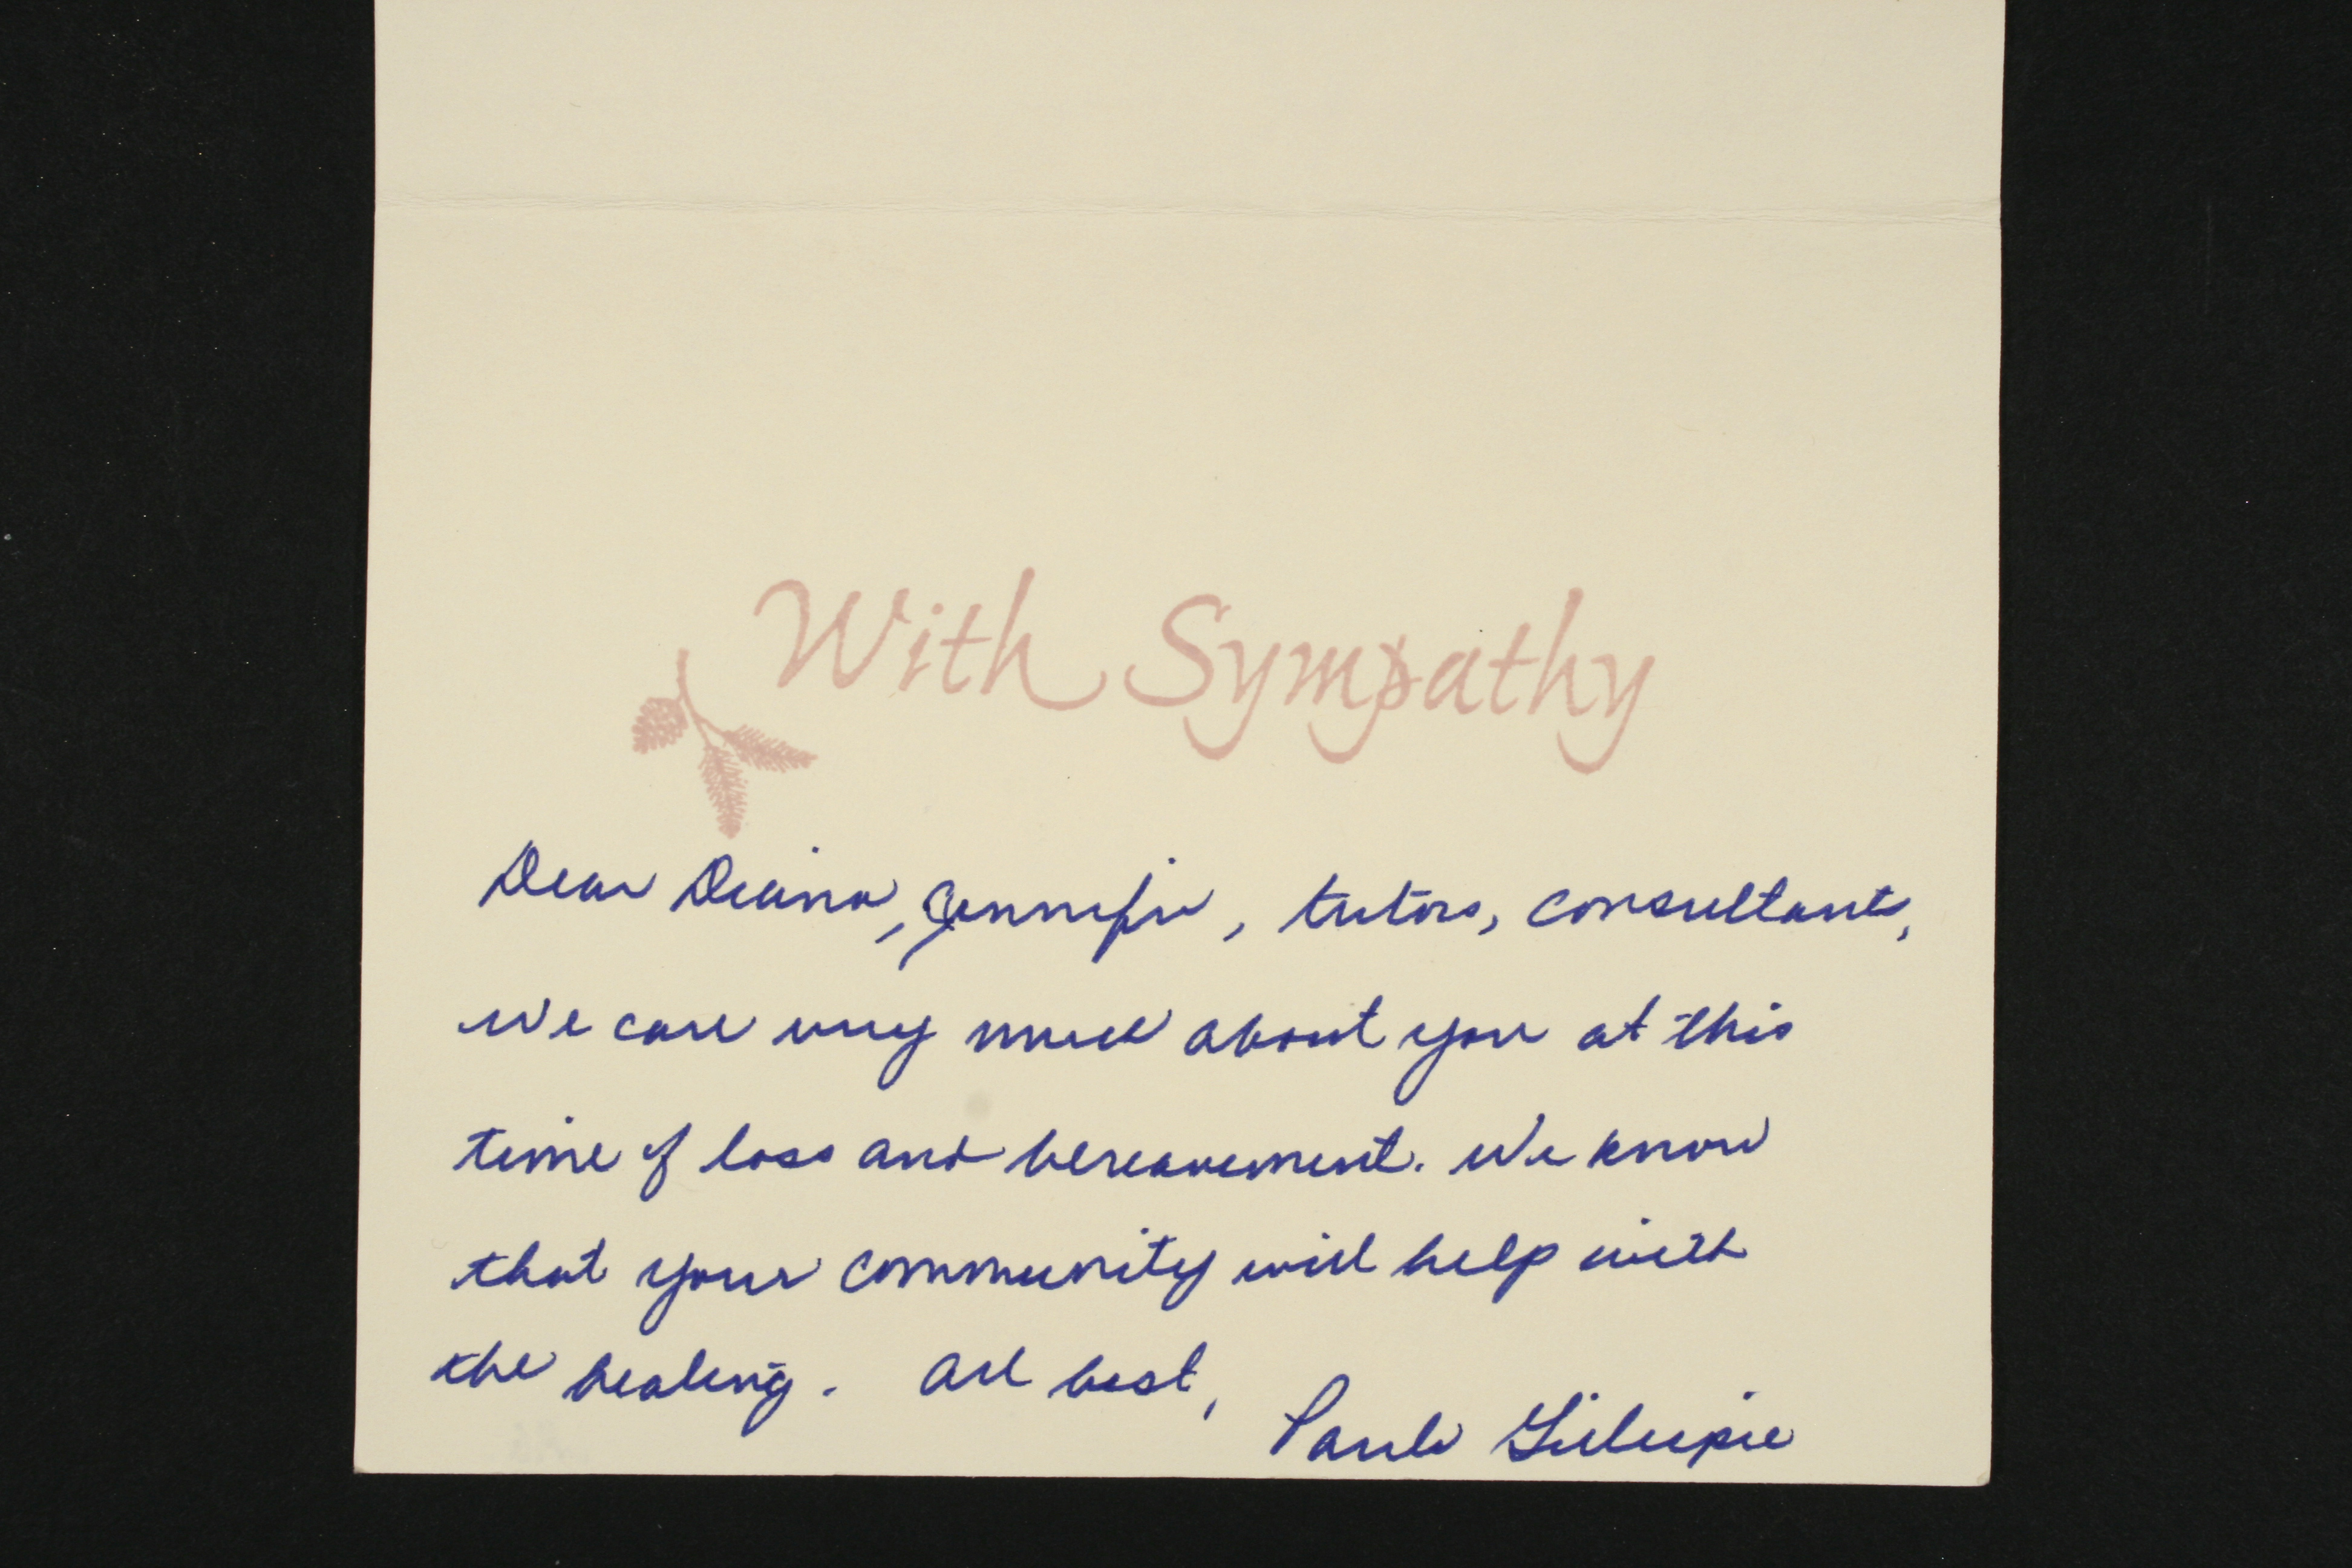 With Sympathy
Dear Diana, Jennifer, tutors, consultants,
We care very much about you at this
time of loss and bereavement. We know
that your community will help with
the healing. All best,
Paula Gillespie